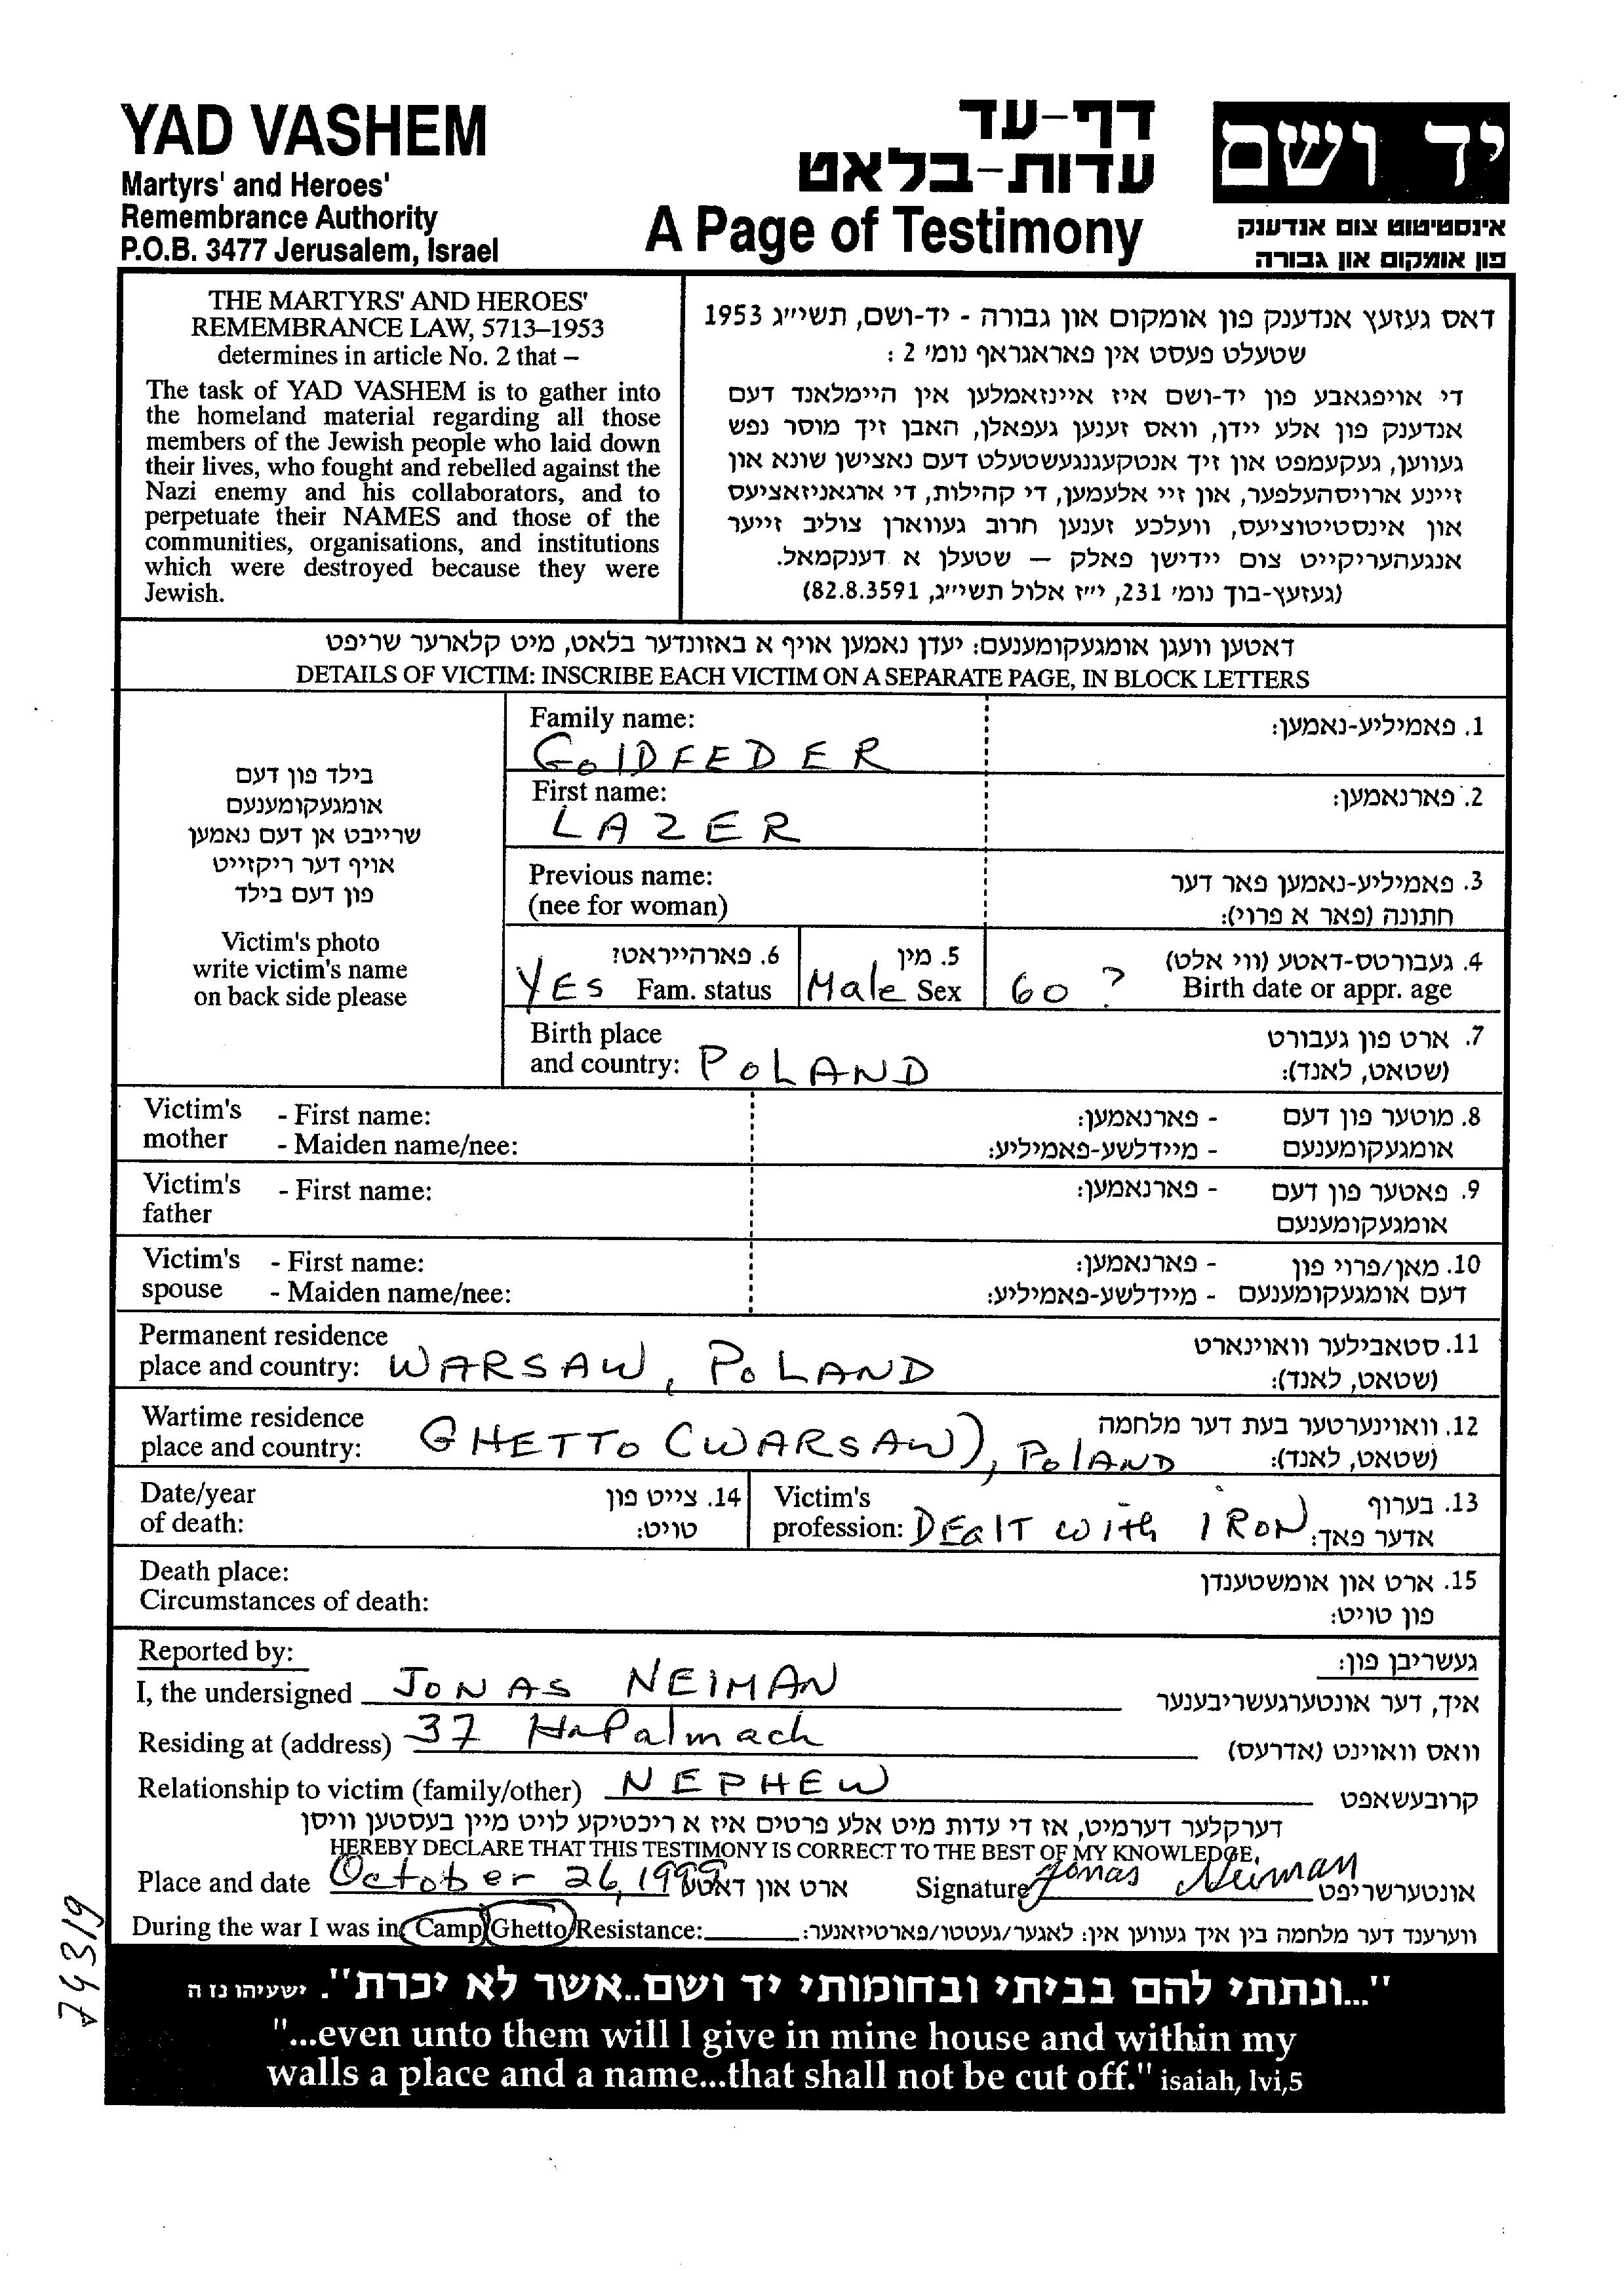 YAD VASHEM
Martyrs' and Heroes'
Remembrance Authority
P.O.B. 3477 Jerusalem, Israel
דף-עד
עדות-בלאט
A Page of Testimony
יד ושם
אינסטיטוט צום אנדענק
פון אומקום און גבורה
THE MARTYRS' AND HEROES'
REMEMBRANCE LAW, 5713–1953
determines in article No. 2 that –
The task of YAD VASHEM is to gather into
the homeland material regarding all those
members of the Jewish people who laid down
their lives, who fought and rebelled against the
Nazi enemy and his collaborators, and to
perpetuate their NAMES and those of the
communities, organisations, and institutions
which were destroyed because they were
Jewish.
דאס געזעץ אנדענק פון אומקום און גבורה - יד-ושם, תשי״ג 1953
שטעלט פעסט אין פאראגראף נומ׳ 2 :
די אויפגאבע פון יד-ושם איז איינזאמלען אין היימלאנד דעם
אנדענק פון אלע יידן, וואס זענען געפאלן, האבן זיך מוסר נפש
געווען, געקעמפט און זיך אנטקעגנגעשטעלט דעם נאצישן שונא און
זיינע ארויסהעלפער, און זיי אלעמען, די קהילות, די ארגאניזאציעס
און אינסטיטוציעס, וועלכע זענען חרוב געווארן צוליב זייער
אנגעהעריקייט צום יידישן פאלק — שטעלן א דענקמאל.
(געזעץ-בוך נומ׳ 231, י״ז אלול תשי״ג, 82.8.3591)
דאטען וועגן אומגעקומענעם: יעדן נאמען אויף א באזונדער בלאט, מיט קלארער שריפט
DETAILS OF VICTIM: INSCRIBE EACH VICTIM ON A SEPARATE PAGE, IN BLOCK LETTERS
בילד פון דעם
אומגעקומענעם
שרייבט אן דעם נאמען
אויף דער ריקזייט
פון דעם בילד
Victim's photo
write victim's name
on back side please
Family name: 1. פאמיליע-נאמען:
GOLDFEDER
First name: 2. פארנאמען:
LAZER
Previous name: 3. פאמיליע-נאמען פאר דער
(nee for woman) חתונה (פאר א פרוי):
6. פארהייראט? 5. מין 4. געבורטס-דאטע (ווי אלט)
YES Fam. status Male Sex 60 ? Birth date or appr. age
Birth place 7. ארט פון געבורט
and country: POLAND (שטאט, לאנד):
Victim's - First name: - פארנאמען: 8. מוטער פון דעם
mother - Maiden name/nee: - מיידלשע-פאמיליע: אומגעקומענעם
Victim's - First name: - פארנאמען: 9. פאטער פון דעם
father אומגעקומענעם
Victim's - First name: - פארנאמען: 10. מאן/פרוי פון
spouse - Maiden name/nee: - מיידלשע-פאמיליע: דעם אומגעקומענעם
Permanent residence 11. סטאבילער וואוינארט
place and country: WARSAW, POLAND (שטאט, לאנד):
Wartime residence 12. וואוינערטער בעת דער מלחמה
place and country: GHETTO (WARSAW), POLAND (שטאט, לאנד):
Date/year 14. צייט פון Victim's 13. בערוף
of death: טויט: profession: DEALT WITH IRON אדער פאך:
Death place: 15. ארט און אומשטענדן
Circumstances of death: פון טויט:
Reported by: געשריבן פון:
I, the undersigned JONAS NEIMAN איך, דער אונטערגעשריבענער
Residing at (address) 37 HaPalmach וואס וואוינט (אדרעס)
Relationship to victim (family/other) NEPHEW קרובעשאפט
דערקלער דערמיט, אז די עדות מיט אלע פרטים איז א ריכטיקע לויט מיין בעסטען וויסן
HEREBY DECLARE THAT THIS TESTIMONY IS CORRECT TO THE BEST OF MY KNOWLEDGE.
Place and date October 26, 1999 ארט און דאטע Signature Jonas Neiman אונטערשריפט
During the war I was in Camp/Ghetto/Resistance: ווערענד דער מלחמה בין איך געווען אין: לאגער/געטטו/פארטיזאנער:
"...ונתתי להם בביתי ובחומותי יד ושם..אשר לא יכרת". ישעיהו נז ה
"...even unto them will I give in mine house and within my
walls a place and a name...that shall not be cut off." isaiah, lvi,5